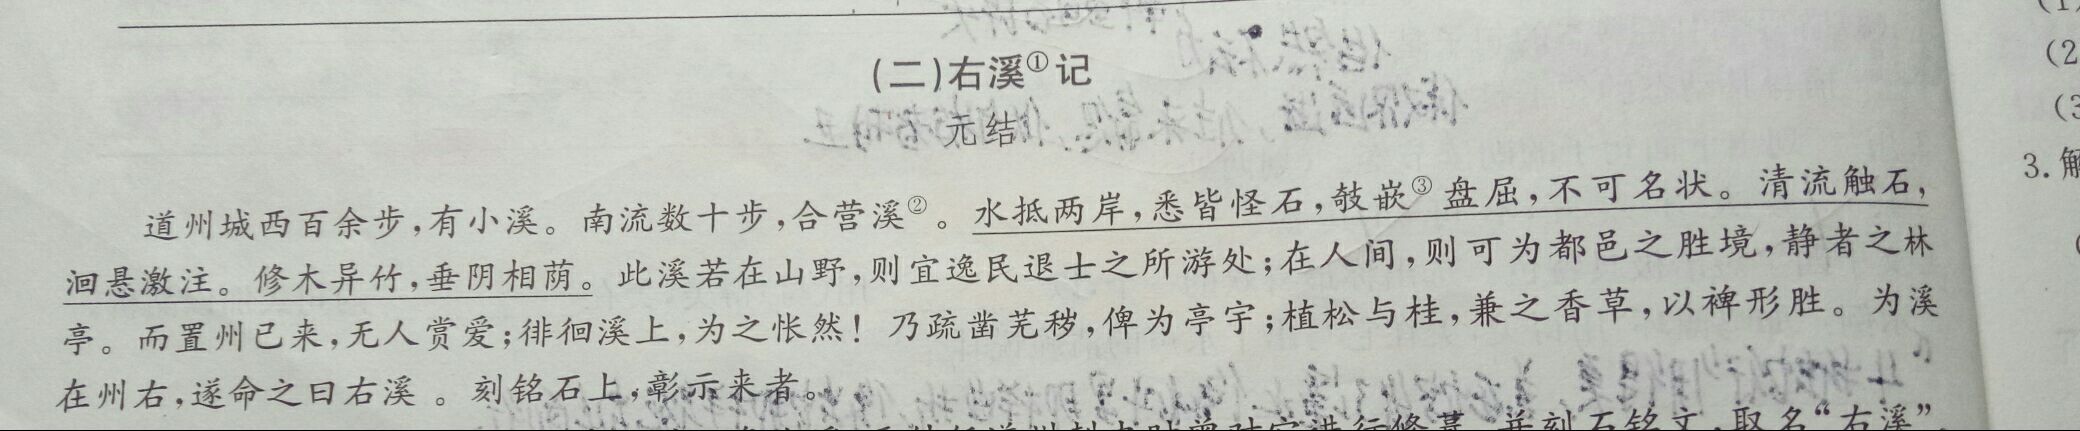 (二)右溪①记
元结
道州城西百余步,有小溪。南流数十步,合营溪②。水抵两岸,悉皆怪石,攲嵌③盘屈,不可名状。清流触石,
洄悬激注。修木异竹,垂阴相荫。此溪若在山野,则宜逸民退士之所游处;在人间,则可为都邑之胜境,静者之林
亭。而置州已来,无人赏爱;徘徊溪上,为之怅然!乃疏凿芜秽,俾为亭宇;植松与桂,兼之香草,以裨形胜。为溪
在州右,遂命之曰右溪。刻铭石上,彰示来者。
进行修葺,并刻石铭文,取名“右溪”,
(1)
(2
(3
3.解